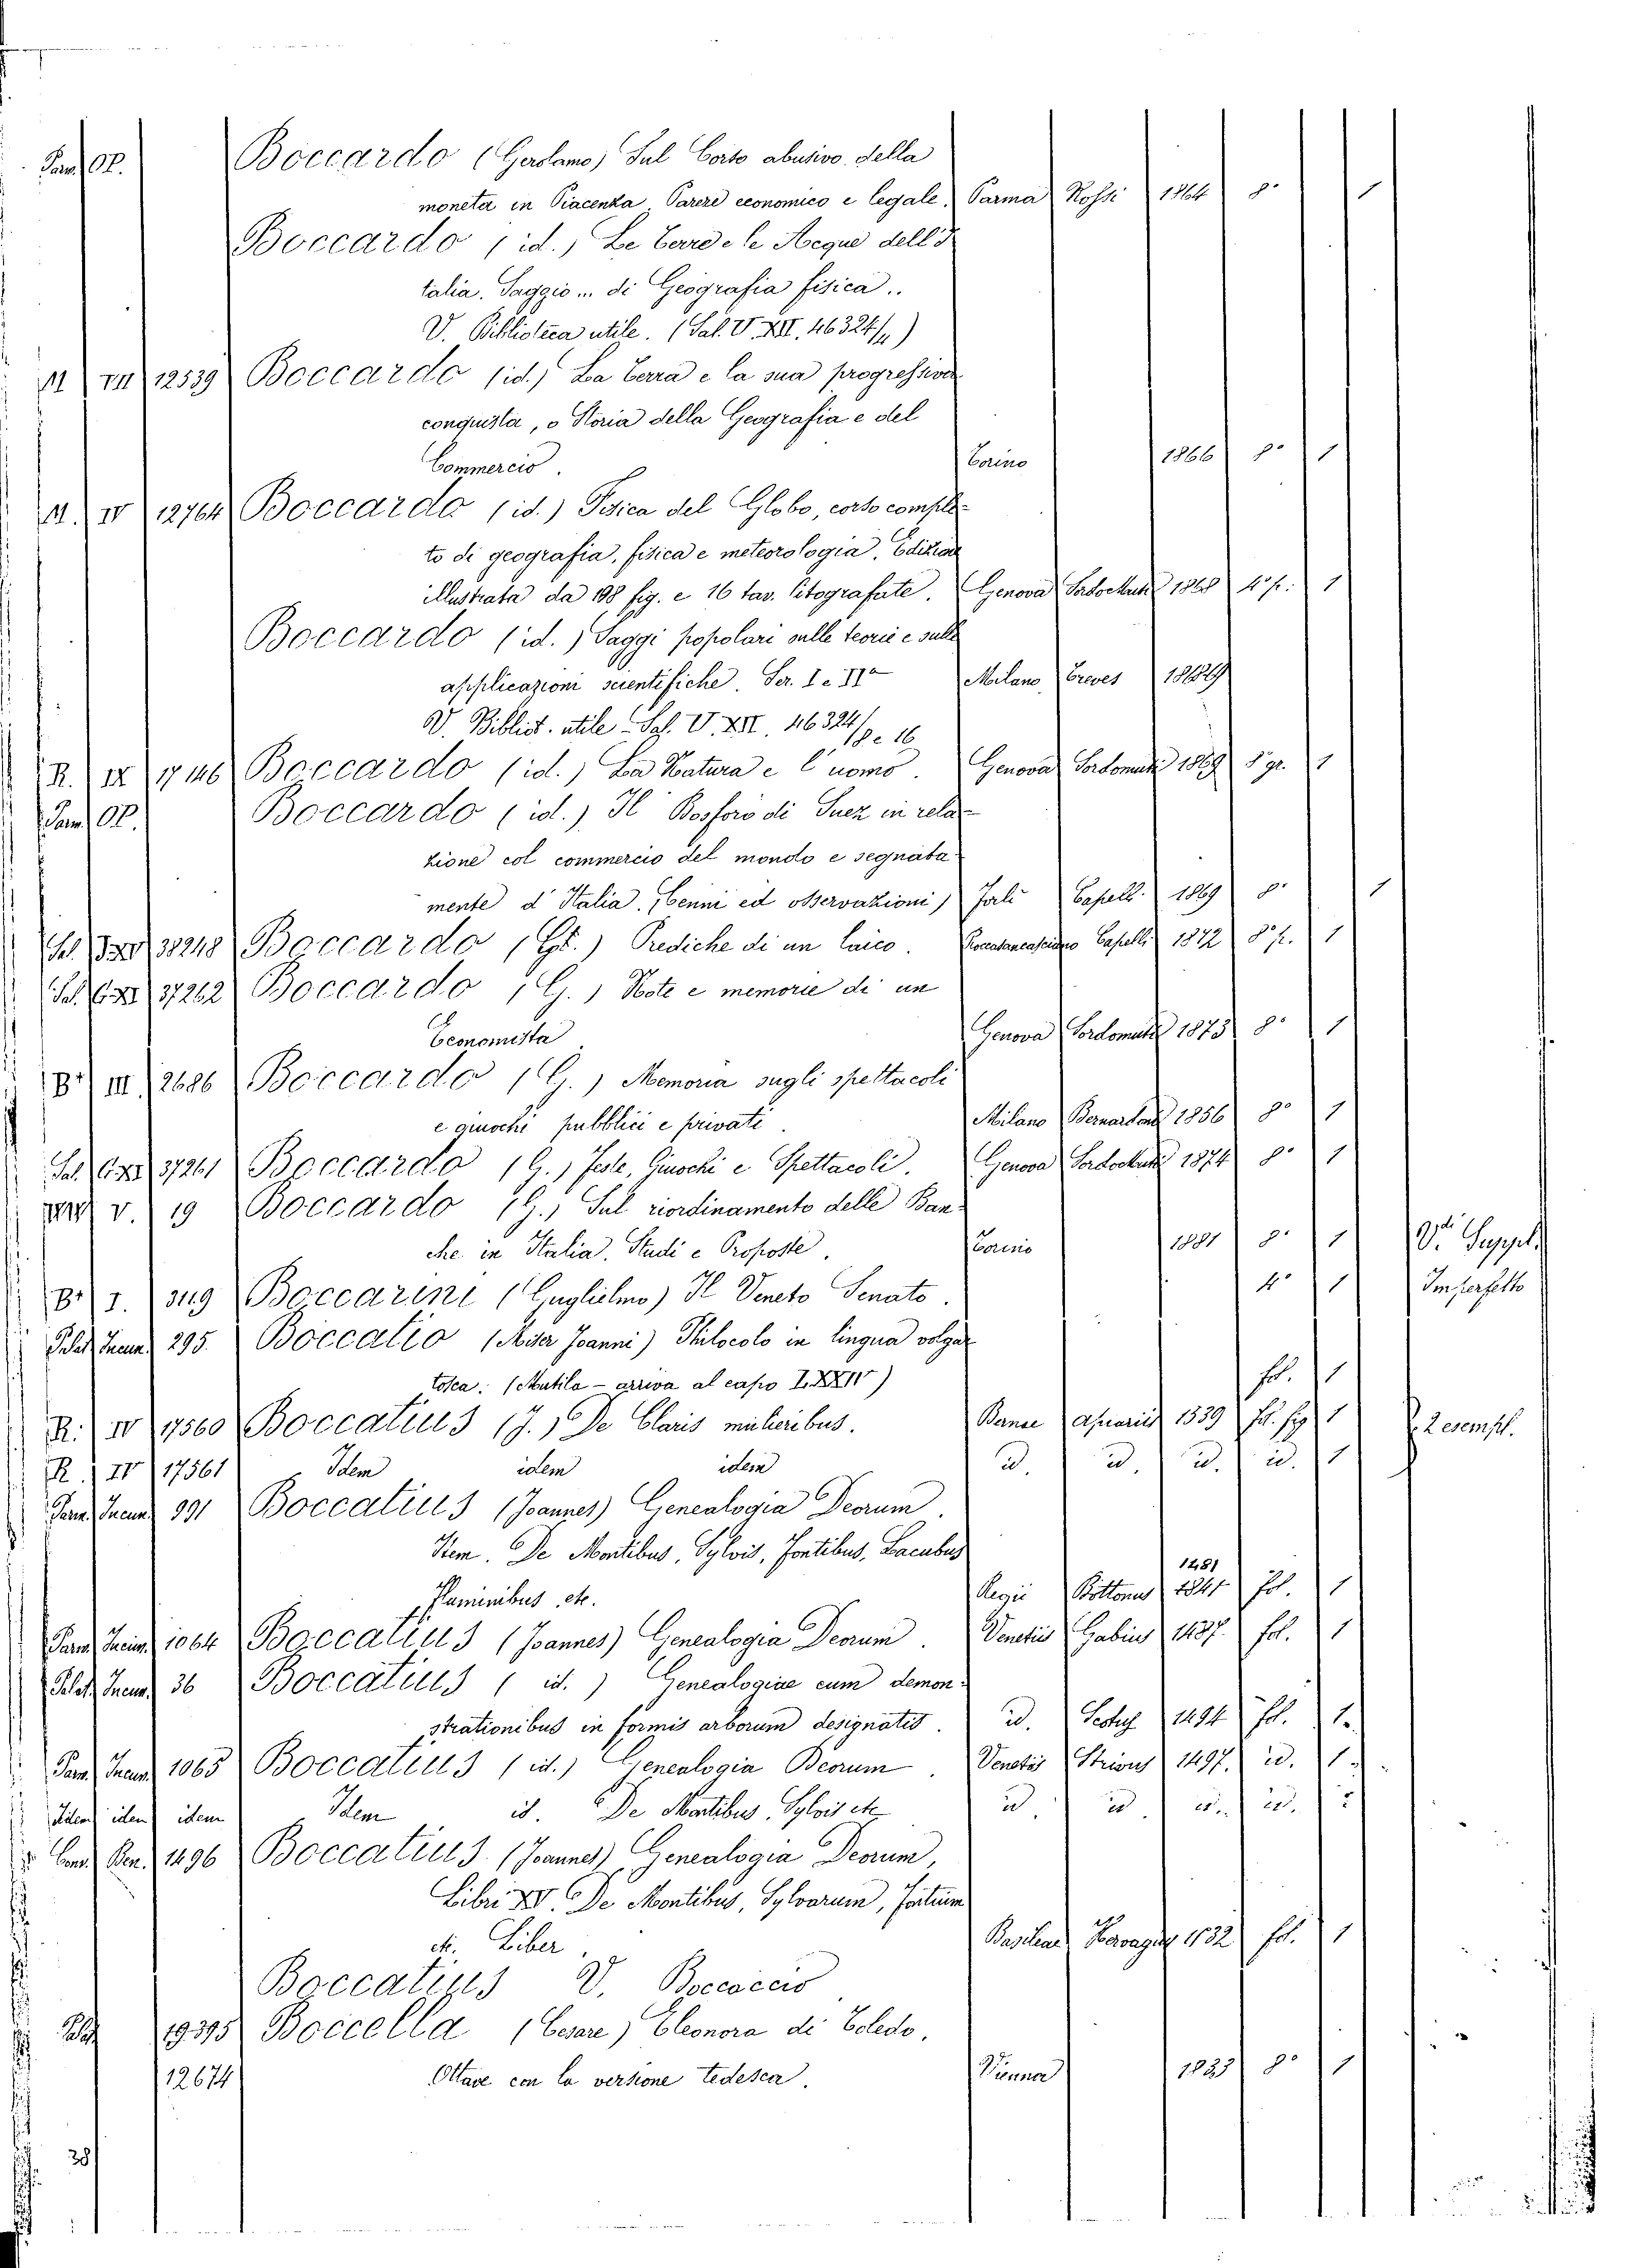 Parm. OP. Boccardo (Gerolamo) Sul Corso abusivo della
moneta in Piacenza. Parere economico e legale. Parma Rossi 1864 8° 1
Boccardo (id.) Le Terre e le Acque dell'I
talia. Saggio... di Geografia fisica..
V. Biblioteca utile. (Sal. V. XII. 46324/4)
M VII 12539 Boccardo (id.) La Terra e la sua progressiva
conquista, o Storia della Geografia e del
Commercio. Torino 1866 8° 1
M. IV 12764 Boccardo (id.) Fisica del Globo, corso comple-
to di geografia, fisica e meteorologia. Edizione
illustrata da 198 fig. e 16 tav. litografate. Genova 1868 4° p. 1
Boccardo (id.) Saggi popolari sulle teorie e sulle
applicazioni scientifiche. Ser. I e IIa Milano Treves
V. Bibliot. utile Sal. V. XII. 46324/18 e 16
R. IX 17146 Boccardo (id.) La Natura e l'uomo. Genova Sordomuti 1869 8° gr. 1
Parm. OP. Boccardo (id.) Il Bosforo di Suez in rela-
zione col commercio del mondo e segnata-
mente d'Italia. (Cenni ed osservazioni) Forlì Capell. 1869 8° 1
Sal. 38248 Boccardo (G.) Prediche di un laico. Capelli 1872 8° p. 1
Sal. 37262 Boccardo (G.) Note e memorie di un
Economista Genova Sordomuti 1873 8° 1
B* III 2686 Boccardo (G.) Memoria sugli spettacoli
e giuochi pubblici e privati. Milano Bernardoni 1856 8° 1
Sal. 37261 Boccardo (G.) Feste, Giuochi e Spettacoli. Genova 1874 8° 1
V. 19 Boccardo (G.) Sul riordinamento delle Ban-
che in Italia. Studi e Proposte. Torino 1881 8° 1 Suppl.
B* I. 3119 Boccarini (Guglielmo) Il Veneto Senato. 4° 1 Imperfetto
Palat. Incun. 295. Boccatio (Miser Joanni) Philocolo in lingua volgar
tosca: (Mutila - arriva al capo LXXIV) fol. 1
R. IV 17560 Boccatius (J.) De Claris mulieribus. Bernae Apiarius 1539 fol. fig. 1 2 esempl.
R. IV 17561 Idem idem idem id. id. id. id. 1
Parm. Incun. 991 Boccatius (Joannes) Genealogia Deorum.
Item. De Montibus, Sylvis, Fontibus, Lacubus
Fluminibus, etc. Regii Bottonus 1481 fol. 1
Parm. Incun. 1064 Boccatius (Joannes) Genealogia Deorum. Venetiis Gabius 1487. fol. 1
Palat. Incun. 36 Boccatius (id.) Genealogiae cum demon-
strationibus in formis arborum designatis. id. 1494 fol. 1.
Parm. Incun. 1065 Boccatius (id.) Genealogia Deorum. Venetiis 1497. id. 1.
Idem idem idem Idem id. De Montibus, Sylvis etc id. id. id. id.
1496 Boccatius (Joannes) Genealogia Deorum,
Libri XV. De Montibus, Sylvarum, Fontium
etc. Liber. Basileae 1532 fol. 1
Boccatius V. Boccaccio
Palat. 19395 Boccella (Cesare) Eleonora di Toledo,
12674 Ottave con la versione tedesca. Vienna 8° 1
28